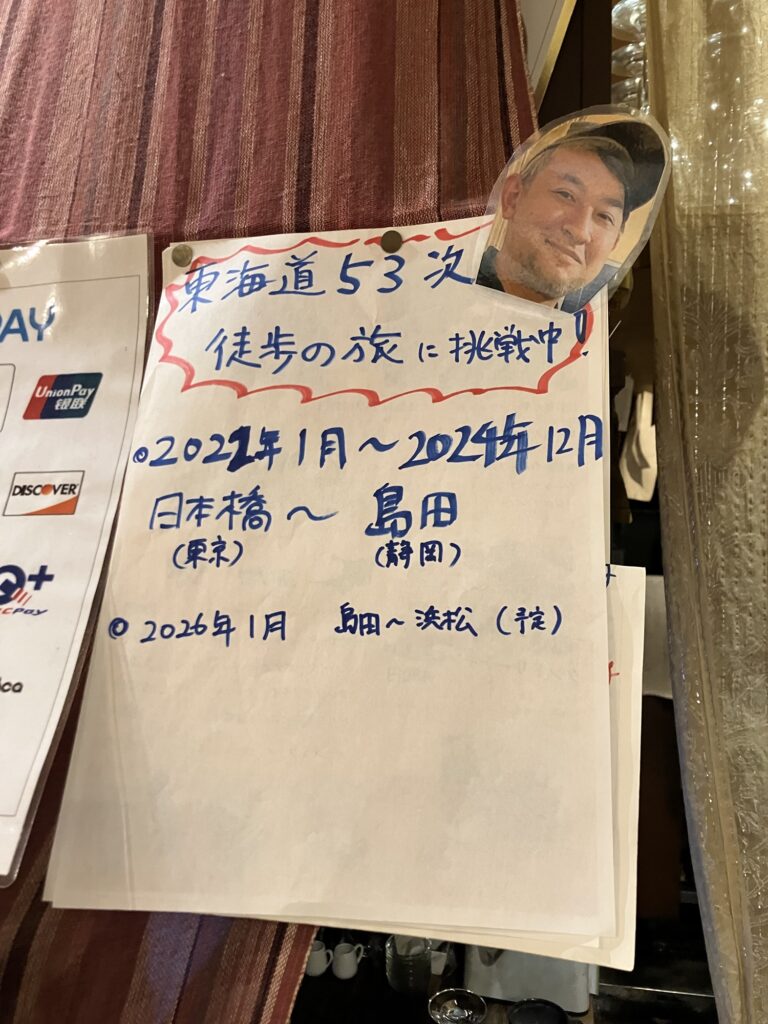 東海道53次
徒歩の旅に挑戦中!
◎2022年1月～2024年12月
日本橋～島田
(東京) (静岡)
◎2026年1月 島田～浜松(予定)
PAY
UnionPay
银联
DISCOVER
Q+
CPay
ica